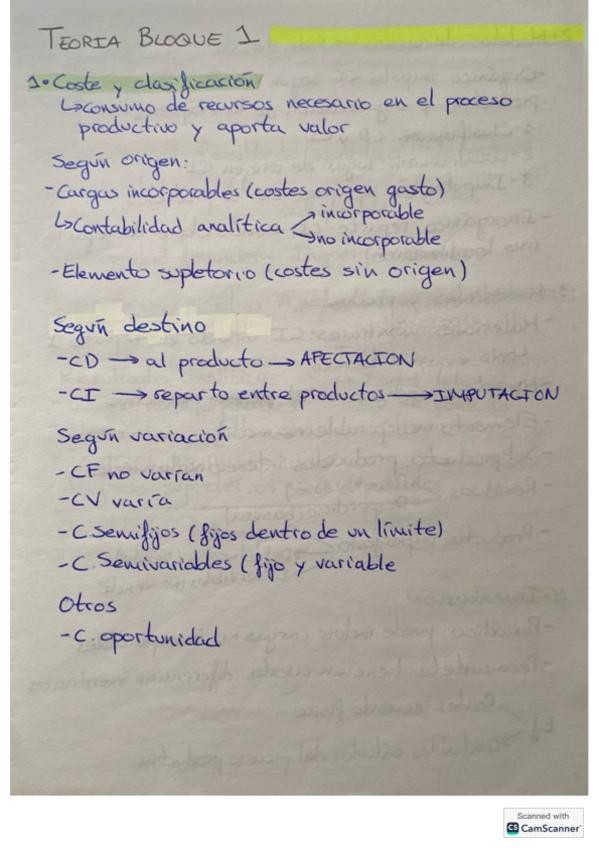 TEORIA BLOQUE 1
1. Coste y clasificación
↳consumo de recursos necesario en el proceso
productivo y aporta valor
Según origen:
- Cargas incorporables (costes origen gasto)
↳Contabilidad analítica → incorporable
→ no incorporable
- Elemento supletorio (costes sin origen)
Según destino
- CD → al producto → AFECTACION
- CI → reparto entre productos → IMPUTACION
Según variación
- CF no varían
- CV varía
- C. Semifijos (fijos dentro de un límite)
- C. Semivariables (fijo y variable
Otros
- C. oportunidad
Scanned with
CS CamScanner